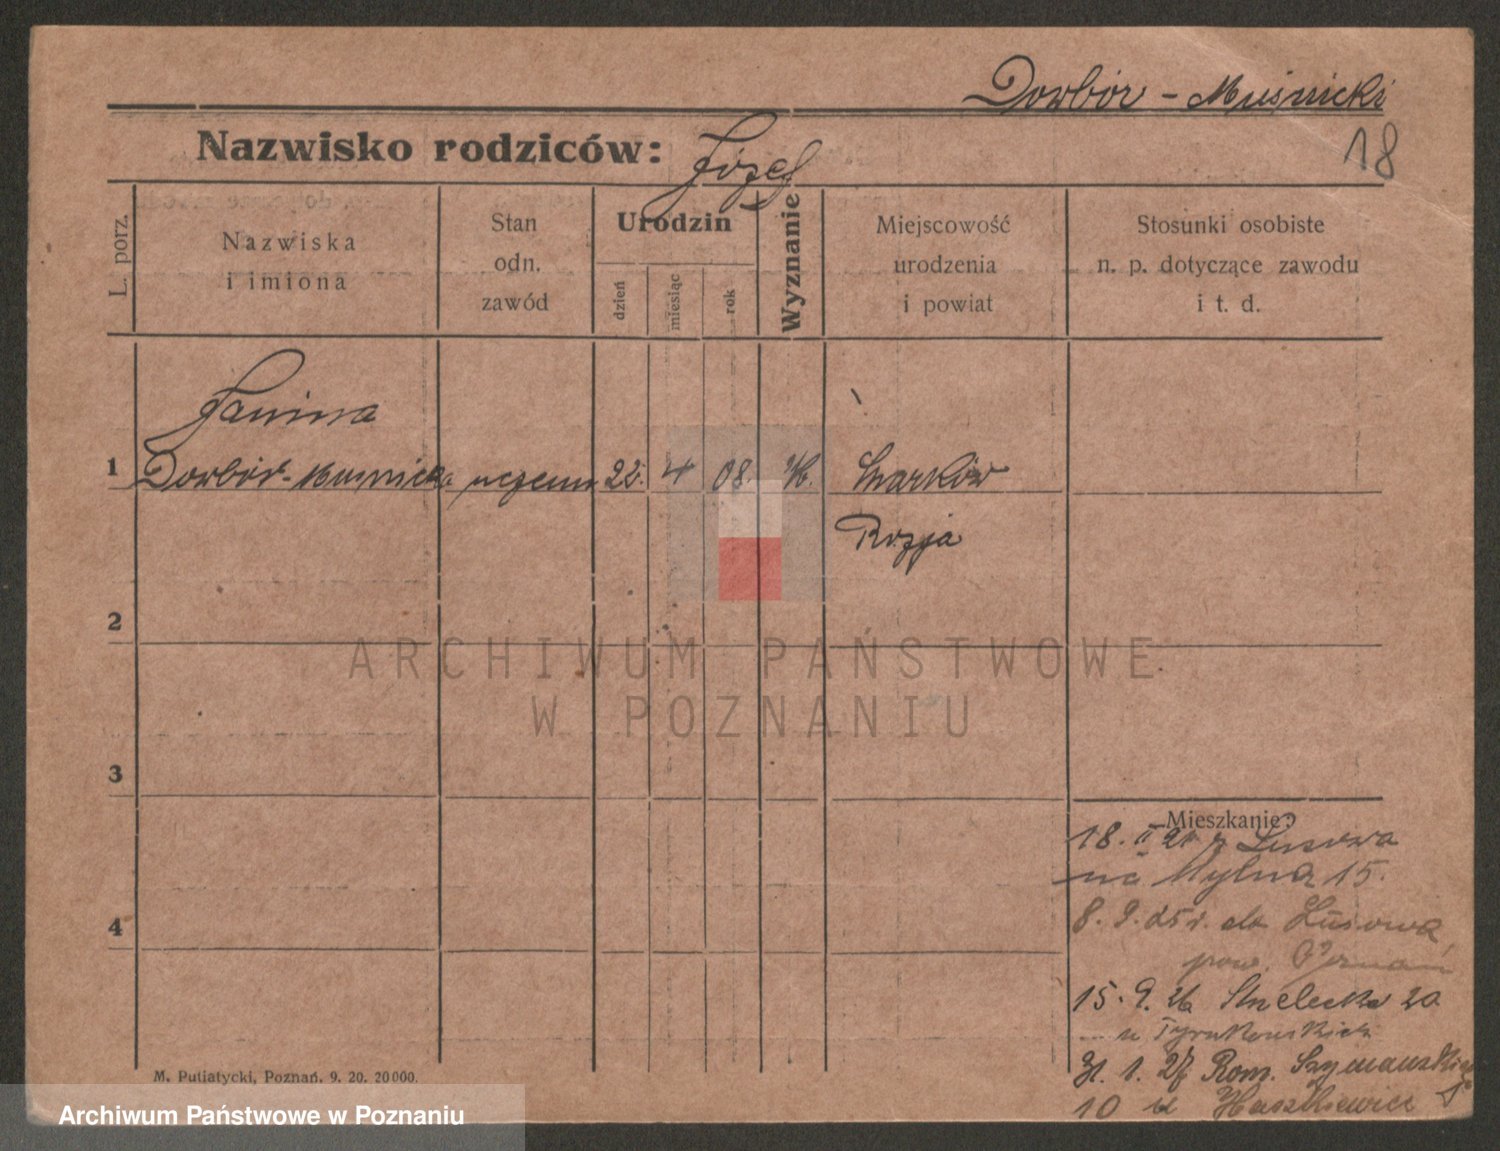 Dowbór - Muśnicki
18
Nazwisko rodziców: Józef
L. porz.
Nazwiska
i imiona
Stan
odn.
zawód
Urodzin
dzień
miesiąc
rok
Wyznanie
Miejscowość
urodzenia
i powiat
Stosunki osobiste
n. p. dotyczące zawodu
i t. d.
Janina
1 Dowbór-Musnicka uczenn 22. 4 08. Charków
Rosja
2
3
4
Mieszkanie:
18. II 21 z Lusowa
na Mylna 15.
8. 9. 25 r. do Lusowa
pow. Poznań
15. 9. 26 Strzelecka 20
u
31. 1. 27 Rom. Szymańskiego
10 u Haszkiewicz
M. Putiatycki, Poznań. 9. 20. 20000.
ARCHIWUM PAŃSTWOWE
W POZNANIU
Archiwum Państwowe w Poznaniu